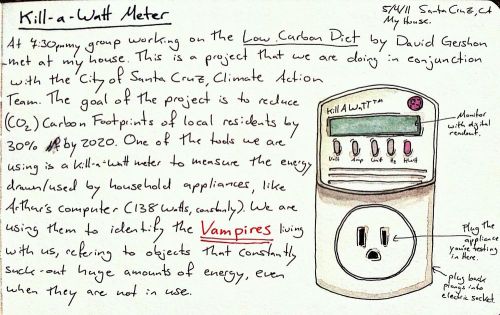 Kill-a-Watt Meter
5/4/11 Santa Cruz, CA
My House.
At 7:30pm my group working on the Low Carbon Diet by David Gershon
met at my house. This is a project that we are doing in conjunction
with the City of Santa Cruz, Climate Action
Team. The goal of the project is to reduce
(CO2) Carbon Footprints of local residents by
30% by 2020. One of the tools we are
using is a kill-a-watt meter to measure the energy
drawn/used by household appliances, like
Arthur's computer (138 watts, constantly). We are
using them to identify the Vampires living
with us, refering to objects that constantly
suck-out huge amounts of energy, even
when they are not in use.
Kill A Watt™
Volt Amp Watt Hz
Monitor
with digital
readout.
Plug the
appliance
you're testing
in here.
plug back
plangs into
electric socket.